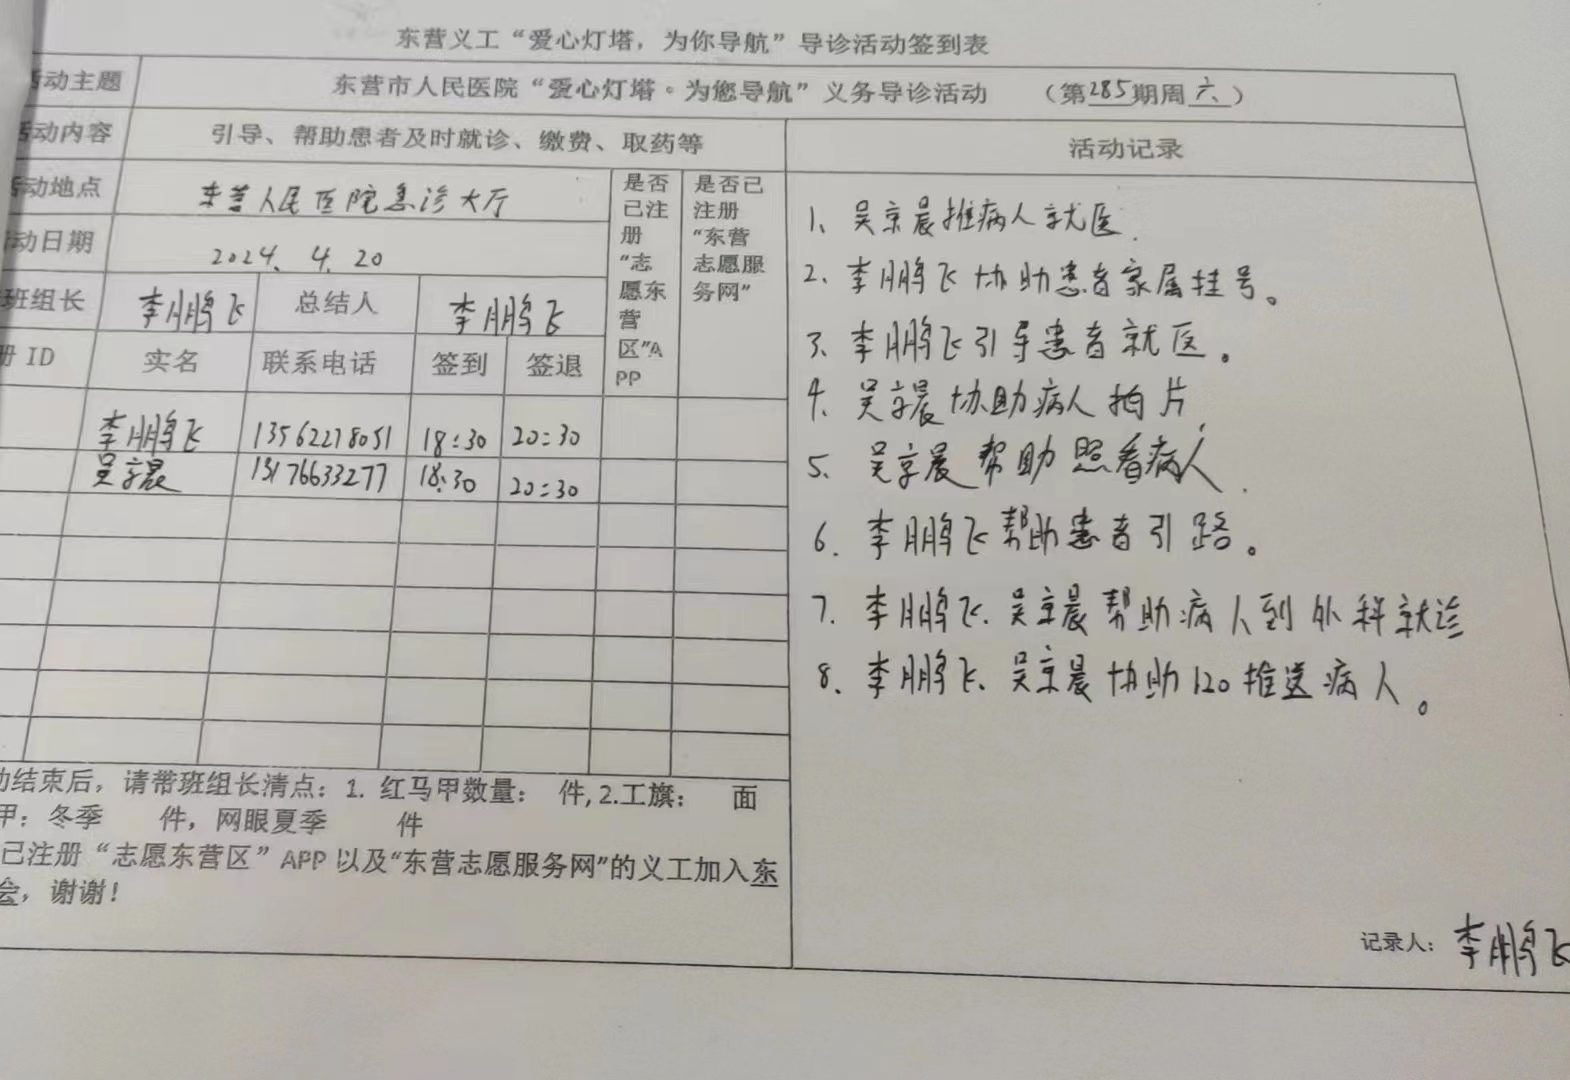 东营义工“爱心灯塔，为你导航”导诊活动签到表
活动主题 东营市人民医院“爱心灯塔·为您导航”义务导诊活动 （第285期周六）
活动内容 引导、帮助患者及时就诊、缴费、取药等 活动记录
活动地点 东营人民医院急诊大厅
动日期 2024.4.20
班组长 李鹏飞 总结人 李鹏飞
册 ID 实名 联系电话 签到 签退
是否已注册“志愿东营区”APP
是否已注册“东营志愿服务网”
李鹏飞 13562278051 18:30 20:30
吴京晨 13176633277 18:30 20:30
1、吴京晨推病人就医.
2、李鹏飞协助患者家属挂号。
3、李鹏飞引导患者就医。
4、吴京晨协助病人拍片
5、吴京晨帮助照看病人.
6、李鹏飞帮助患者引路。
7、李鹏飞、吴京晨帮助病人到外科就诊
8、李鹏飞、吴京晨协助120推送病人。
动结束后，请带班组长清点：1. 红马甲数量： 件, 2.工旗： 面
甲：冬季 件，网眼夏季 件
已注册“志愿东营区”APP 以及“东营志愿服务网”的义工加入东
会，谢谢！
记录人：李鹏飞